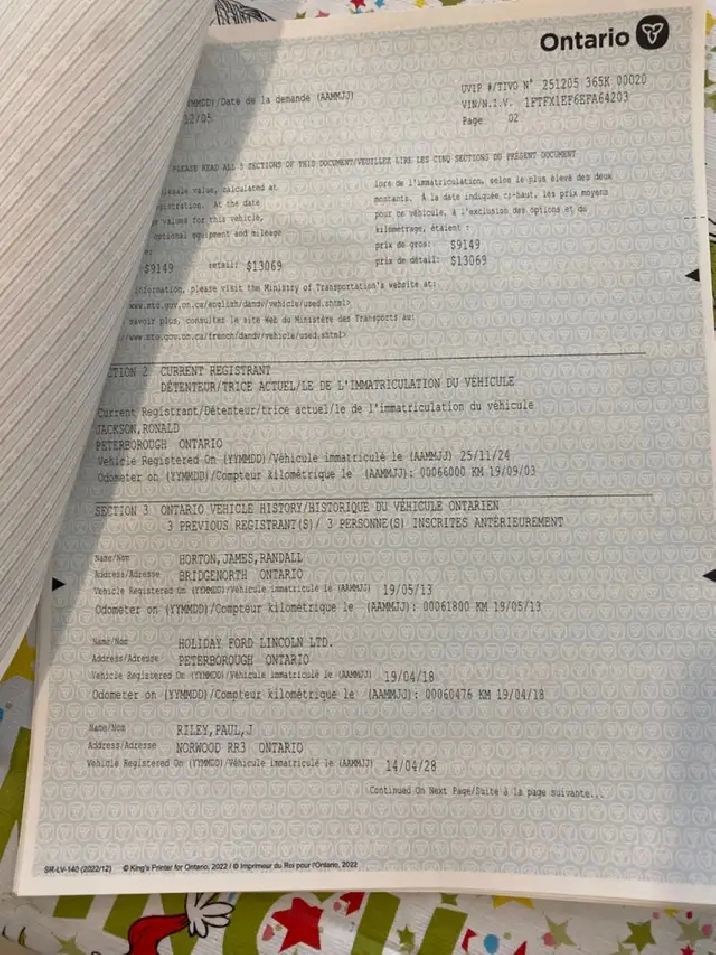 Ontario
MMDD)/Date de la demande (AAMMJJ)
12/05
UVIP #/TIVO N° 251205 365K 00020
VIN/N.I.V. 1FTFX1EF6EFA64203
Page 02
PLEASE READ ALL 5 SECTIONS OF THIS DOCUMENT/VEUILLEZ LIRE LES CINQ SECTIONS DU PRÉSENT DOCUMENT
esale value, calculated at
istration. At the date
values for this vehicle,
optional equipment and mileage
$9149 retail: $13069
lors de l'immatriculation, selon le plus élevé des deux
montants. À la date indiquée ci-haut, les prix moyens
pour ce véhicule, à l'exclusion des options et du
kilométrage, étaient :
prix de gros: $9149
prix de détail: $13069
information, please visit the Ministry of Transportation's website at:
www.mto.gov.on.ca/english/dandv/vehicle/used.shtml>
savoir plus, consultez le site Web du Ministère des Transports au:
//www.mto.gov.on.ca/french/dandv/vehicle/used.shtml>
CTION 2 CURRENT REGISTRANT
DÉTENTEUR/TRICE ACTUEL/LE DE L'IMMATRICULATION DU VÉHICULE
Current Registrant/Détenteur/trice actuel/le de l'immatriculation du véhicule
JACKSON,RONALD
PETERBOROUGH ONTARIO
Vehicle Registered On (YYMMDD)/Véhicule immatriculé le (AAMMJJ) 25/11/24
Odometer on (YYMMDD)/Compteur kilométrique le (AAMMJJ): 00066000 KM 19/09/03
SECTION 3 ONTARIO VEHICLE HISTORY/HISTORIQUE DU VÉHICULE ONTARIEN
3 PREVIOUS REGISTRANT(S)/ 3 PERSONNE(S) INSCRITES ANTÉRIEUREMENT
Name/Nom HORTON,JAMES,RANDALL
Address/Adresse BRIDGENORTH ONTARIO
Vehicle Registered On (YYMMDD)/Véhicule immatriculé le (AAMMJJ) 19/05/13
Odometer on (YYMMDD)/Compteur kilométrique le (AAMMJJ): 00061800 KM 19/05/13
Name/Nom HOLIDAY FORD LINCOLN LTD.
Address/Adresse PETERBOROUGH ONTARIO
Vehicle Registered On (YYMMDD)/Véhicule immatriculé le (AAMMJJ) 19/04/18
Odometer on (YYMMDD)/Compteur kilométrique le (AAMMJJ): 00060476 KM 19/04/18
Name/Nom RILEY,PAUL,J
Address/Adresse NORWOOD RR3 ONTARIO
Vehicle Registered On (YYMMDD)/Véhicule immatriculé le (AAMMJJ) 14/04/28
Continued On Next Page/Suite à la page suivante...
SR-LV-140 (2022/12) © King's Printer for Ontario, 2022 / © Imprimeur du Roi pour l'Ontario, 2022